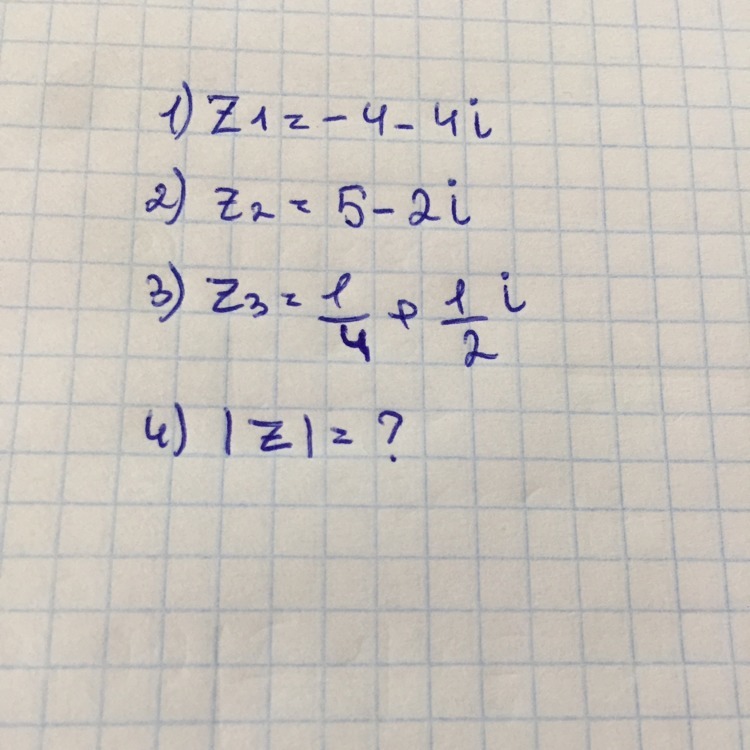 1) Z1 = -4 - 4i
2) Z2 = 5 - 2i
3) Z3 = 1/4 + 1/2 i
4) |Z| = ?